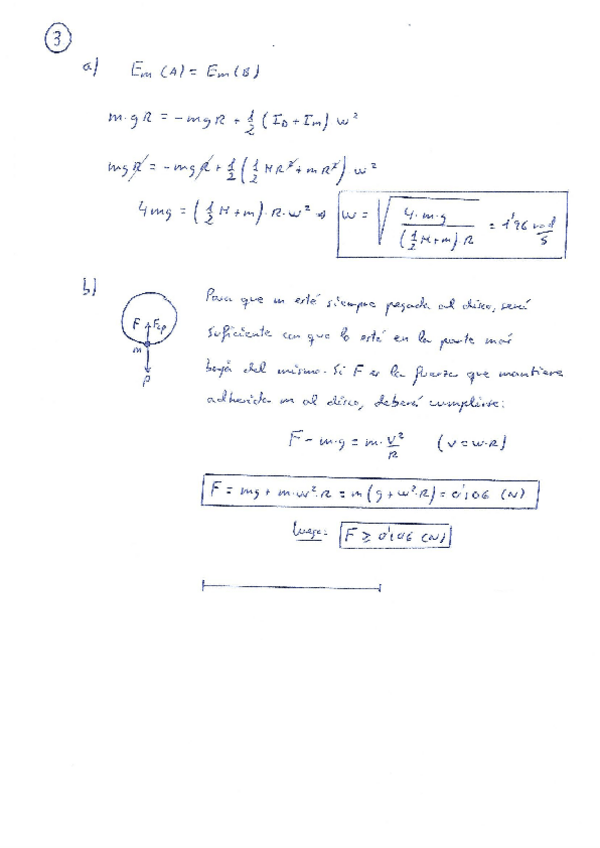 3
a) Em (A) = Em (B)
m·gR = -mgR + 1/2 (ID + Im) w²
mgR = -mgR + 1/2 (1/2 MR² + mR²) w²
4mg = (1/2 M + m)·R·w² ⇒ w = √(4·m·g / (1/2 M + m) R) = 1'96 rad/s
b) Para que m esté siempre pegada al disco, será
suficiente con que lo esté en la parte más
baja del mismo. Si F es la fuerza que mantiene
adherida m al disco, deberá cumplirse:
F Fcp
m
P
F - m·g = m·v²/R (v = w·R)
F = mg + m·w²·R = m(g + w²·R) = 0'106 (N)
Luego: F ≥ 0'106 (N)